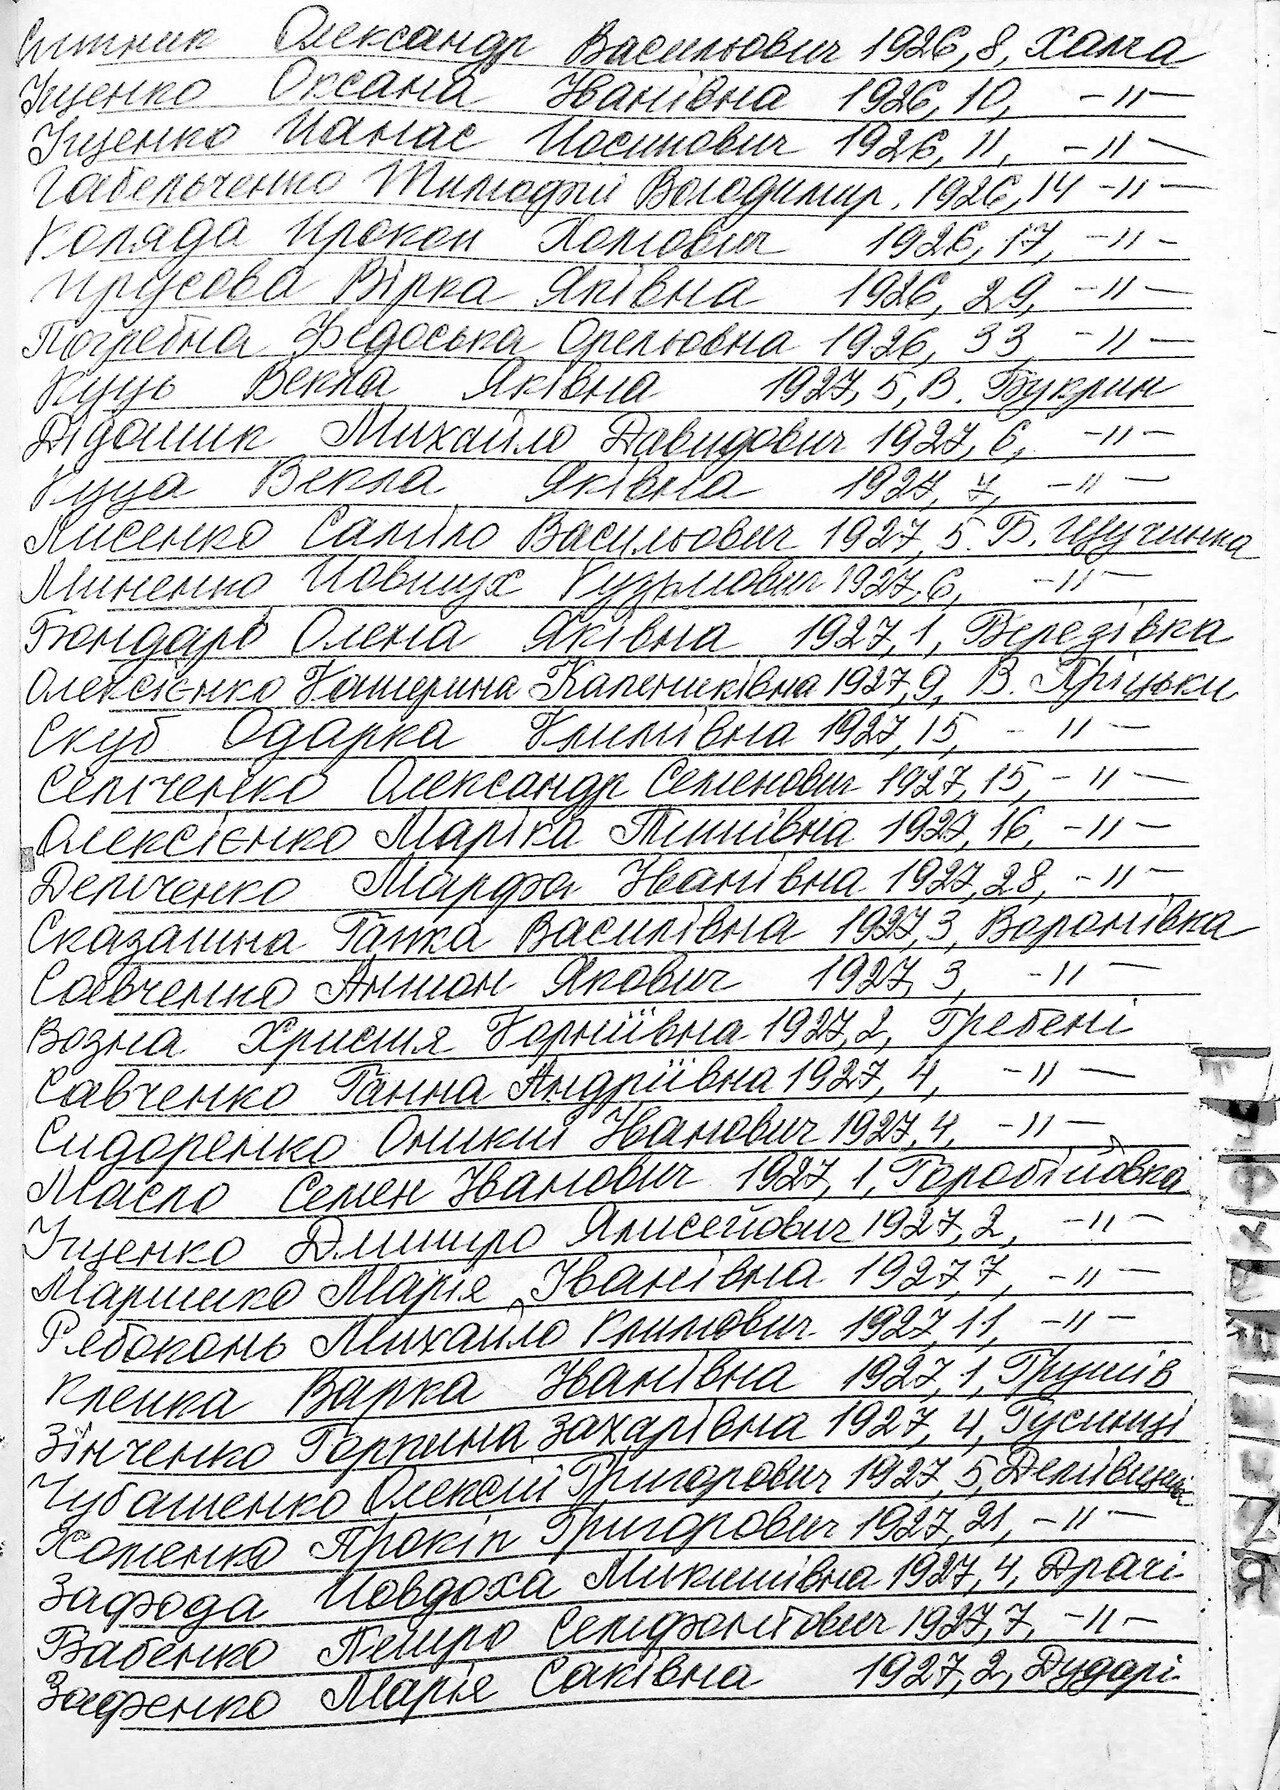 Ситник Олександр Васильович 1926, 8, Халча
Іщенко Оксана Іванівна 1926, 10, -"-
Іщенко Панас Йосипович 1926, 11, -"-
Габельченко Тимофій Володимир. 1926, 14 -"-
Коляда Прокоп Хомович 1926, 17, -"-
Прусова Вірка Яківна 1926, 29, -"-
Погребна Федоська Орельовна 1926, 33 -"-
Куць Векла Яківна 1927, 5, В. Букрин
Дідошик Михайло Давидович 1927, 6, -"-
Куца Векла Яківна 1927, 7, -"-
Лисенко Саміло Васильович 1927, 5. Б. Щучинка
Миненко Йовтух Кузьмович 1927, 6, -"-
Бондарь Олена Яківна 1927, 1, Березівка
Олексієнко Катерина Капениківна 1927, 9, В. Пріцьки
Скуб Одарка Климівна 1927, 15, -"-
Сельченко Олександр Семенович 1927, 15, -"-
Олексієнко Маріка Тишівна 1927, 16, -"-
Дельченко Марфа Іванівна 1927, 28, -"-
Сказашна Ганка Василівна 1927, 3, Воронівка
Савченко Антон Якович 1927, 3, -"-
Возна Христя Корніївна 1927, 2, Гребені
Савченко Ганна Андріївна 1927, 4, -"-
Сидоренко Оникий Іванович 1927, 4, -"-
Масло Семен Іванович 1927, 1, Горобіївка
Іщенко Дмитро Ялисейович 1927, 2, -"-
Маришко Марія Іванівна 1927, 7, -"-
Рябоконь Михайло Климович 1927, 11, -"-
Клепка Варка Іванівна 1927, 1, Грушів
Зінченко Горпина Захарівна 1927, 4, Гусинці
Чубатенко Олексій Григорович 1927, 5,
Хоменко Прокіп Григорович 1927, 21, -"-
Зафода Йовдоха Микитівна 1927, 4, Драчі
Бабенко Петро Селіфонтович 1927, 7, -"-
Зафенко Марія Саківна 1927, 2, Дударі